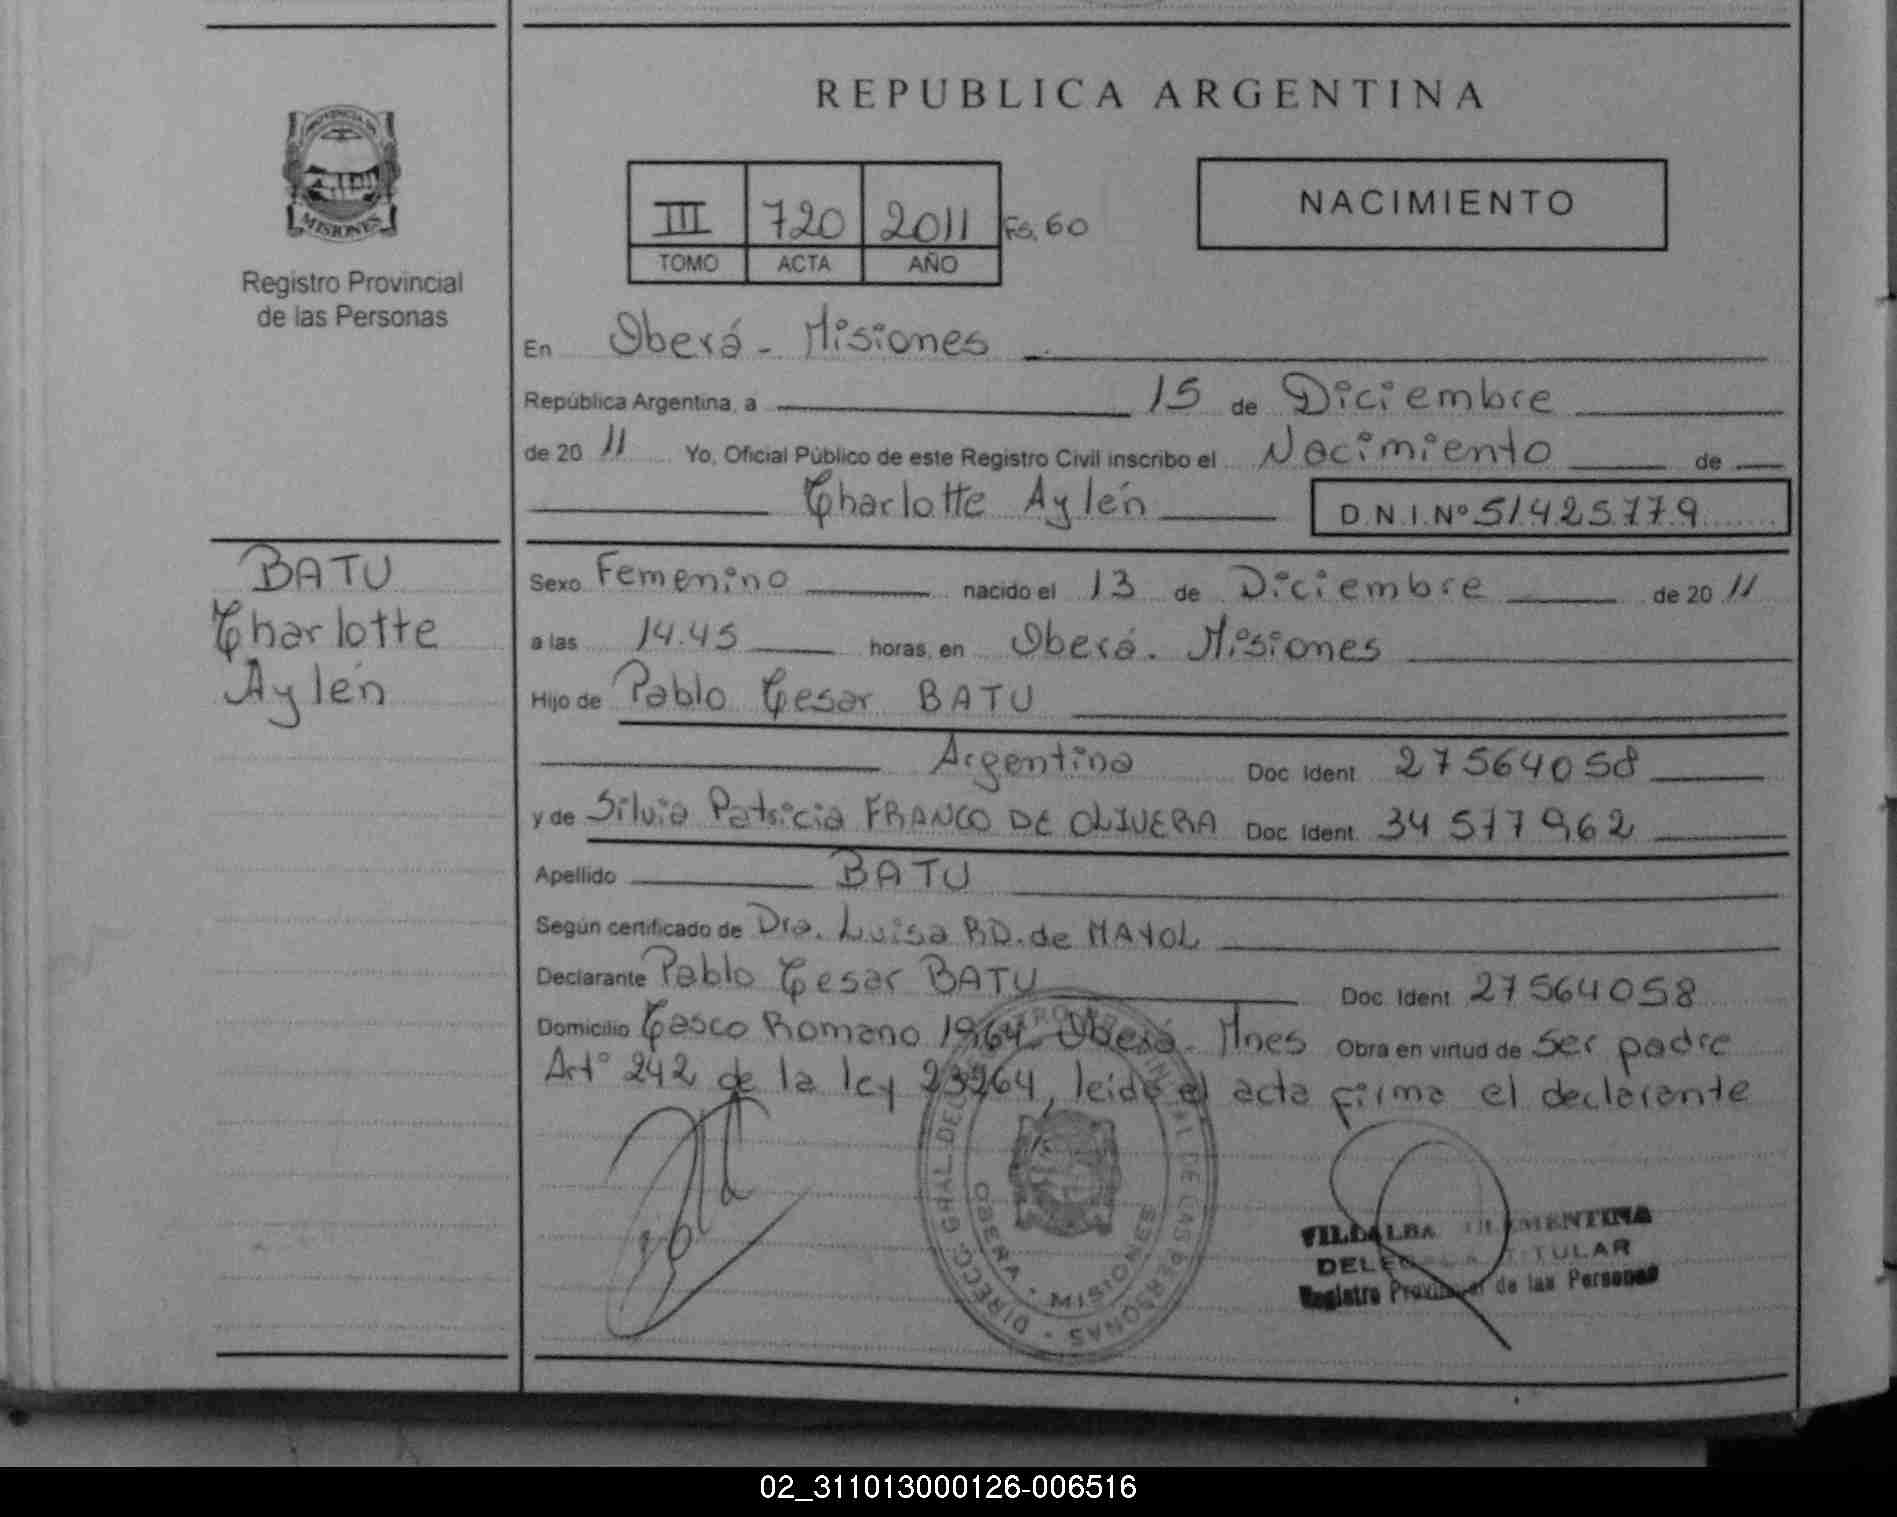 REPUBLICA ARGENTINA
PROVINCIA DE
MISIONES
Registro Provincial
de las Personas
III 720 2011 Fs. 60
TOMO ACTA AÑO
NACIMIENTO
En Oberá - Misiones
República Argentina, a 15 de Diciembre
de 20 11 Yo, Oficial Público de este Registro Civil inscribo el Nacimiento de
Charlotte Aylén D.N.I.Nº 51425779
BATU
Charlotte
Aylén
Sexo Femenino nacido el 13 de Diciembre de 20 11
a las 14.45 horas, en Oberá. Misiones
Hijo de Pablo Cesar BATU
Argentina Doc. Ident. 27564058
y de Silvia Patricia FRANCO DE OLIVERA Doc. Ident. 34 577962
Apellido BATU
Según certificado de Dra. Luisa RD. de MAYOL
Declarante Pablo Cesar BATU Doc. Ident. 27564058
Domicilio Casco Romano 1964. Oberá - Mnes Obra en virtud de ser padre
Artº 242 de la ley 23264, leida el acta firma el declarante
DIRECC. GRAL. DEL PROVINCIAL DE LAS PERSONAS
OBERA - MISIONES
VILLALBA CLEMENTINA
DELEGADA TITULAR
Registro Provincial de las Personas
02_311013000126-006516